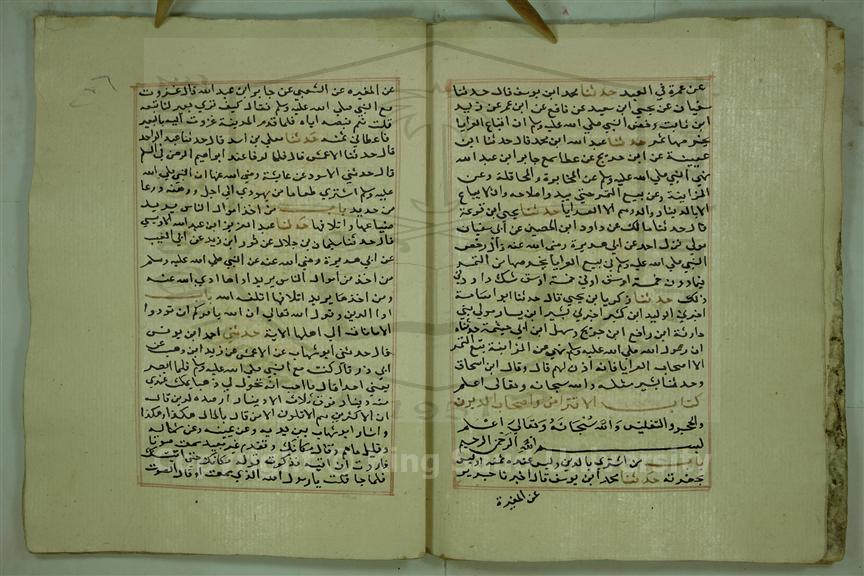 عن عمرة في العبد حدثنا محمد ابن يوسف قال حدثنا
سفيان عن يحيى ابن سعيد عن نافع عن ابن عمر عن زيد
ابن ثابت رخص النبي صلى الله عليه وسلم ان تباع العرايا
بخرصها تمر حدثنا عبد الله ابن محمد قال حدثنا ابن
عيينة عن ابن جريج عن عطا سمع جابر ابن عبد الله
نهى النبي صلى الله عليه وسلم عن المخابرة والمحاقلة وعن
المزابنة وعن بيع التمر حتى يبدو صلاحه والا يباع
الا بالدينار والدرهم الا العرايا حدثنا يحيى ابن قزعة
قال حدثنا مالك عن داود ابن الحصين عن ابي سفيان
مولى ابن احمد عن ابي هريرة رضي الله عنه قال رخص
النبي صلى الله عليه وسلم في بيع العرايا بخرصها من التمر
فيما دون خمسة اوسق او في خمسة اوسق شك داود في
ذلك حدثنا زكريا ابن يحيى قال حدثنا ابو اسامة
اخبرني الوليد ابن كثير اخبرني بشير ابن يسار مولى بني
حارثة ان رافع ابن خديج وسهل ابن ابي حثمة حدثاه
ان رسول الله صلى الله عليه وسلم نهى عن المزابنة بيع التمر
الا اصحاب العرايا فانه اذن لهم قال وقال ابن اسحاق
وحدثنا بشير مثله والله سبحانه وتعالى اعلم
كتاب الاقتراض واصحاب الديون
والحجر والتفليس والله سبحانه وتعالى اعلم
بسم الله الرحمن الرحيم
من اشترى بالدين وليس عنده ثمنه او ليس
بحضرته حدثنا محمد ابن يوسف قال اخبرنا جرير
عن المغيرة
عن المغيرة عن الشعبي عن جابر ابن عبد الله قال غزوت
مع النبي صلى الله عليه وسلم فقال كيف ترى بعيرك اتبيعه
قلت نعم فبعته اياه فلما قدم المدينة غدوت اليه بالبعير
فاعطاني ثمنه حدثنا معلى ابن اسد قال حدثنا عبد الواحد
قال حدثنا الاعمش قال تذاكرنا عند ابراهيم الرهن في السلم
قال حدثني الاسود عن عائشة رضي الله عنها ان النبي صلى الله
عليه وسلم اشترى طعاما من يهودي الى اجل ورهنه درعا
من حديد باب من اخذ اموال الناس يريد
اداءها واتلافها حدثنا عبد العزيز ابن عبد الله الاويسي
قال حدثنا سليمان بن بلال عن ثور ابن زيد عن ابي الغيث
عن ابي هريرة رضي الله عنه عن النبي صلى الله عليه وسلم
من اخذ من اموال الناس يريد اداها ادى الله عنه
ومن اخذها يريد اتلافها اتلفه الله باب
ادا الديون وقول الله تعالى ان الله يامركم ان تودوا
الامانات الى اهلها الاية حدثني احمد ابن يونس
قال حدثني ابو شهاب عن الاعمش عن زيد ابن وهب عن
ابي ذر قال كنت مع النبي صلى الله عليه وسلم فلما ابصر
يعني احدا قال ما احب انه تحول لي ذهبا يمكث عندي
منه دينار فوق ثلاث الا دينار ارصده لدين قال
ان الاكثرين هم الاقلون الا من قال بالمال هكذا وهكذا
واشار ابو شهاب بين يديه وعن يمينه وعن شماله
وقليل ما هم وقال مكانك وتقدم غير بعيد سمعت صوتا
فاردت ان اتيه فذكرت قوله مكانك حتى اتيك
فلما جا قلت يا رسول الله الذي سمعت او قال الصوت
King Saud University
1957